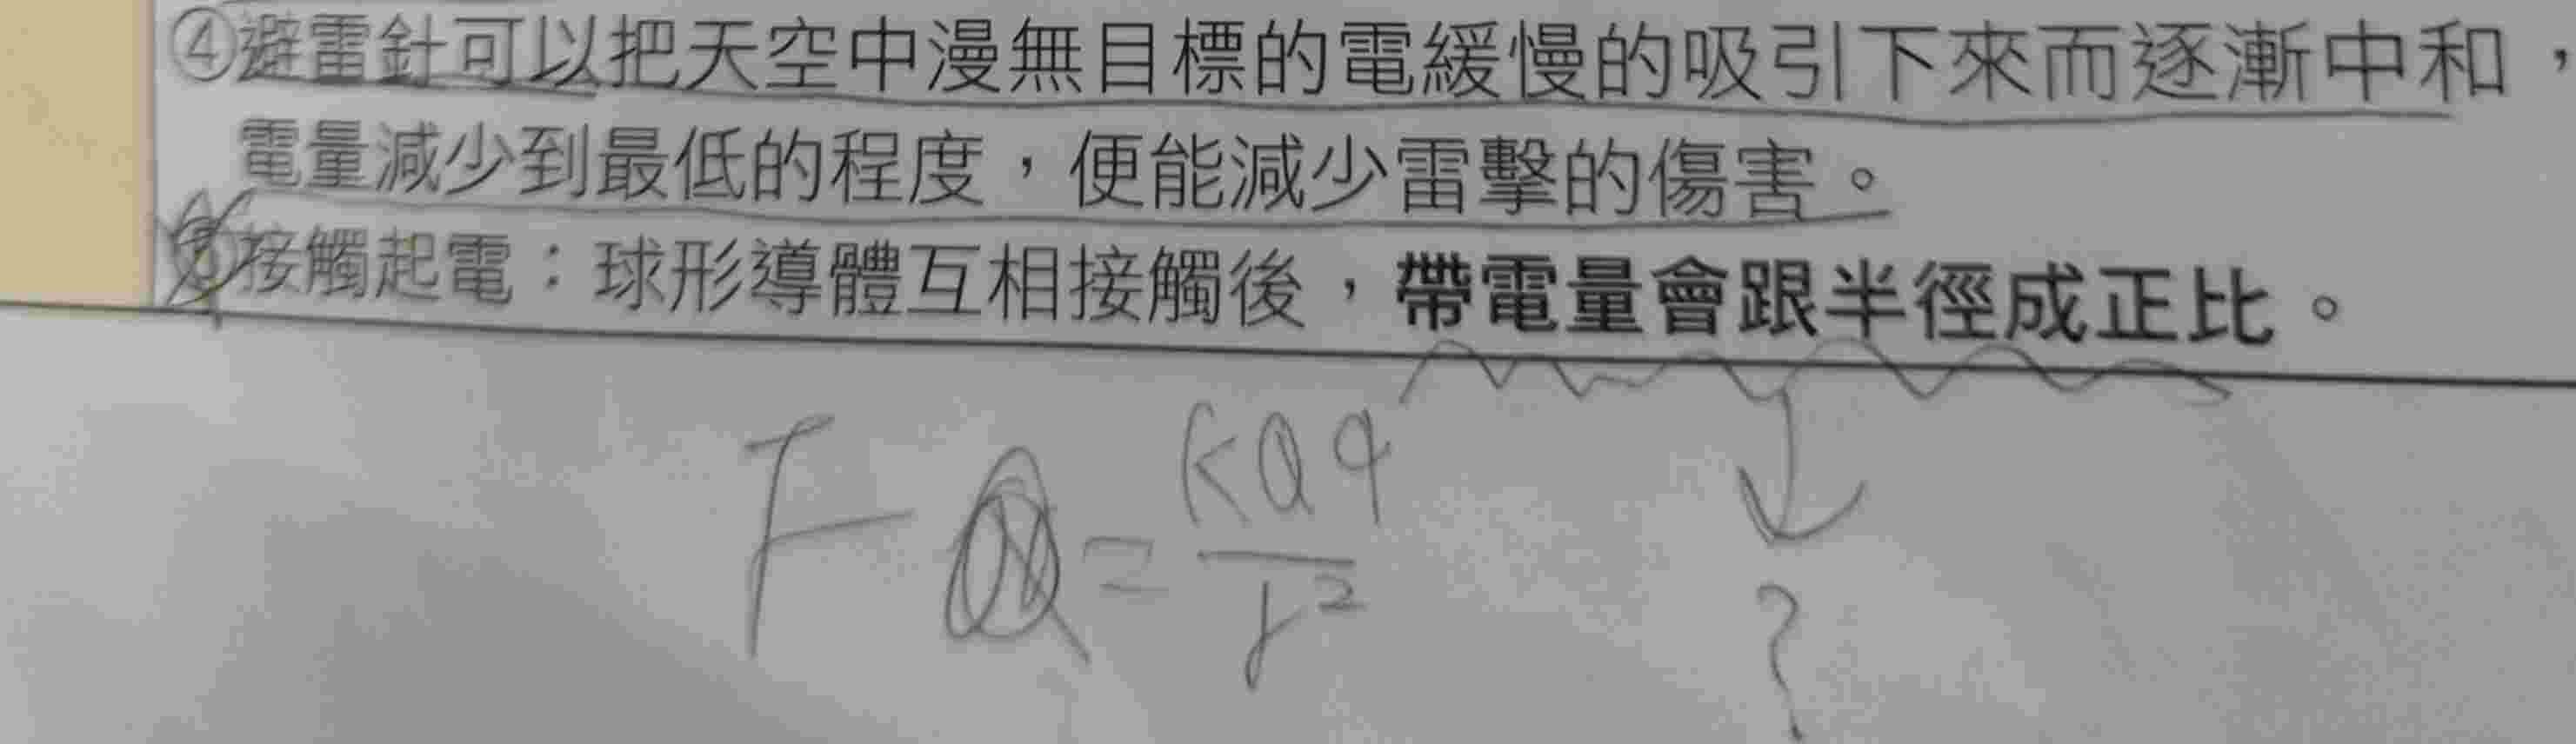 ④避雷針可以把天空中漫無目標的電緩慢的吸引下來而逐漸中和，
電量減少到最低的程度，便能減少雷擊的傷害。
接觸起電：球形導體互相接觸後，帶電量會跟半徑成正比。
F = KQq / r²
?